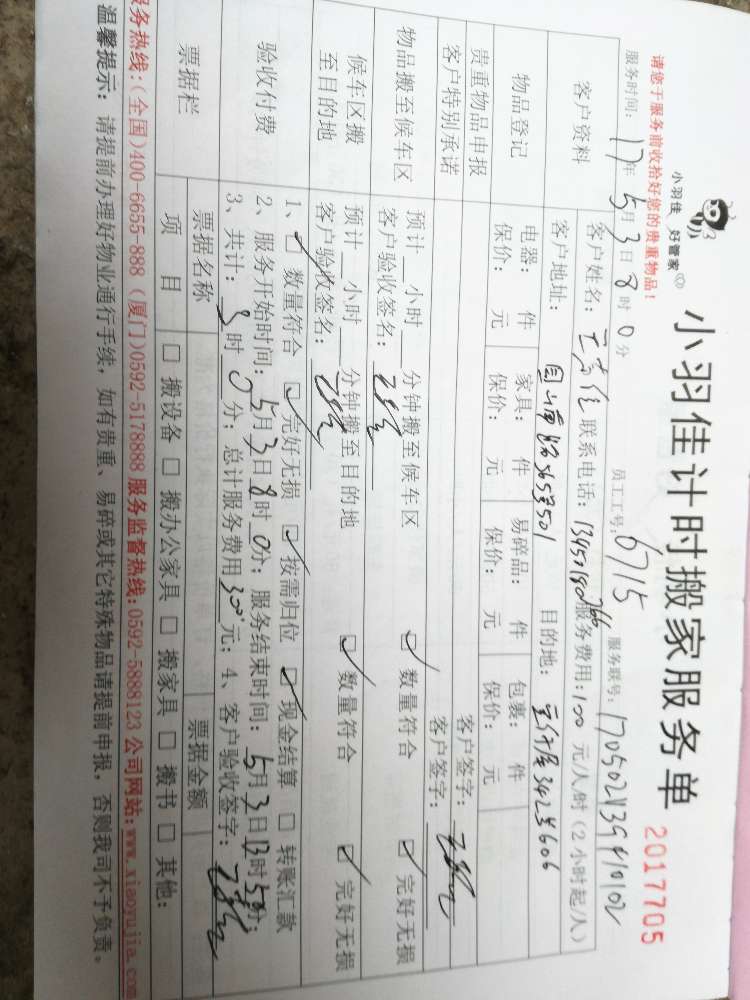 小羽佳 好管家
小羽佳计时搬家服务单
2017705
请您于服务前收拾好您的贵重物品！
服务时间：17年5月3日8时0分 员工工号：6715 服务联号：
客户资料
客户姓名： 联系电话： 服务费用：100元/人/时（2小时起/人）
客户地址： 目的地：
物品登记
电器： 件 家具： 件 易碎品： 件 包裹： 件
保价： 元 保价： 元 保价： 元 保价： 元
贵重物品申报 客户签字：
客户特别承诺 客户签字：
物品搬至候车区
预计__小时__分钟搬至候车区 ☑ 数量符合 ☑ 完好无损
客户验收签名：
候车区搬至目的地
预计__小时__分钟搬至目的地 ☑ 数量符合 ☑ 完好无损
客户验收签名：
验收付费
1、☑ 数量符合 ☑ 完好无损 ☑ 按需归位 ☑ 现金结算 □ 转账汇款
2、服务开始时间：5月3日8时0分；服务结束时间：5月3日
3、共计： 时0分；总计服务费用300元；4、客户验收签字：
票据栏
票据名称 票据金额
项 目 □ 搬设备 □ 搬办公家具 □ 搬家具 □ 搬书 □ 其他：
服务热线：(全国)400-6655-888 (厦门)0592-5178888 服务监督热线：0592-5888123 公司网站：www.xiaoyujia.com
温馨提示：请提前办理好物业通行手续，如有贵重、易碎或其它特殊物品请提前申报，否则我司不予负责。